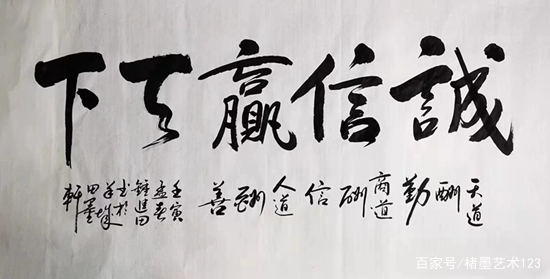 誠信贏天下
天道酬勤 商道酬信 人道酬善
壬寅孟春鍾進田书於羊城田墨軒
百家号/楮墨艺术123